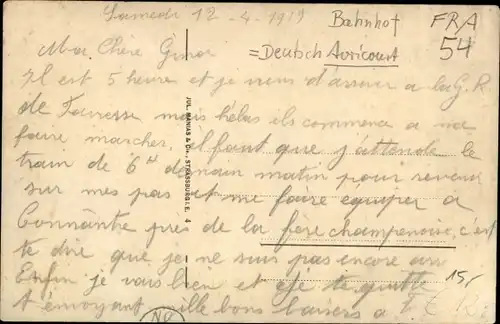 Samedi 12-4-1919
Bahnhof
FRA
54
Ma Chère
=Deutsch Avricourt
Il est 5 heure et je viens d'arriver a la G.R.
de mais hélas ils commence a me
faire marcher, il faut que j'attende le
train de 6H demain matin pour revenir
sur mes pas et me faire équiper a
Connantre près de la fère champenoise, c'est
te dire que je ne suis pas encore au
Enfin je vais bien et te quitte
t envoyant mille bons baisers a
15,-
JUL. MANIAS & Cie., STRASSBURG I. E. 4